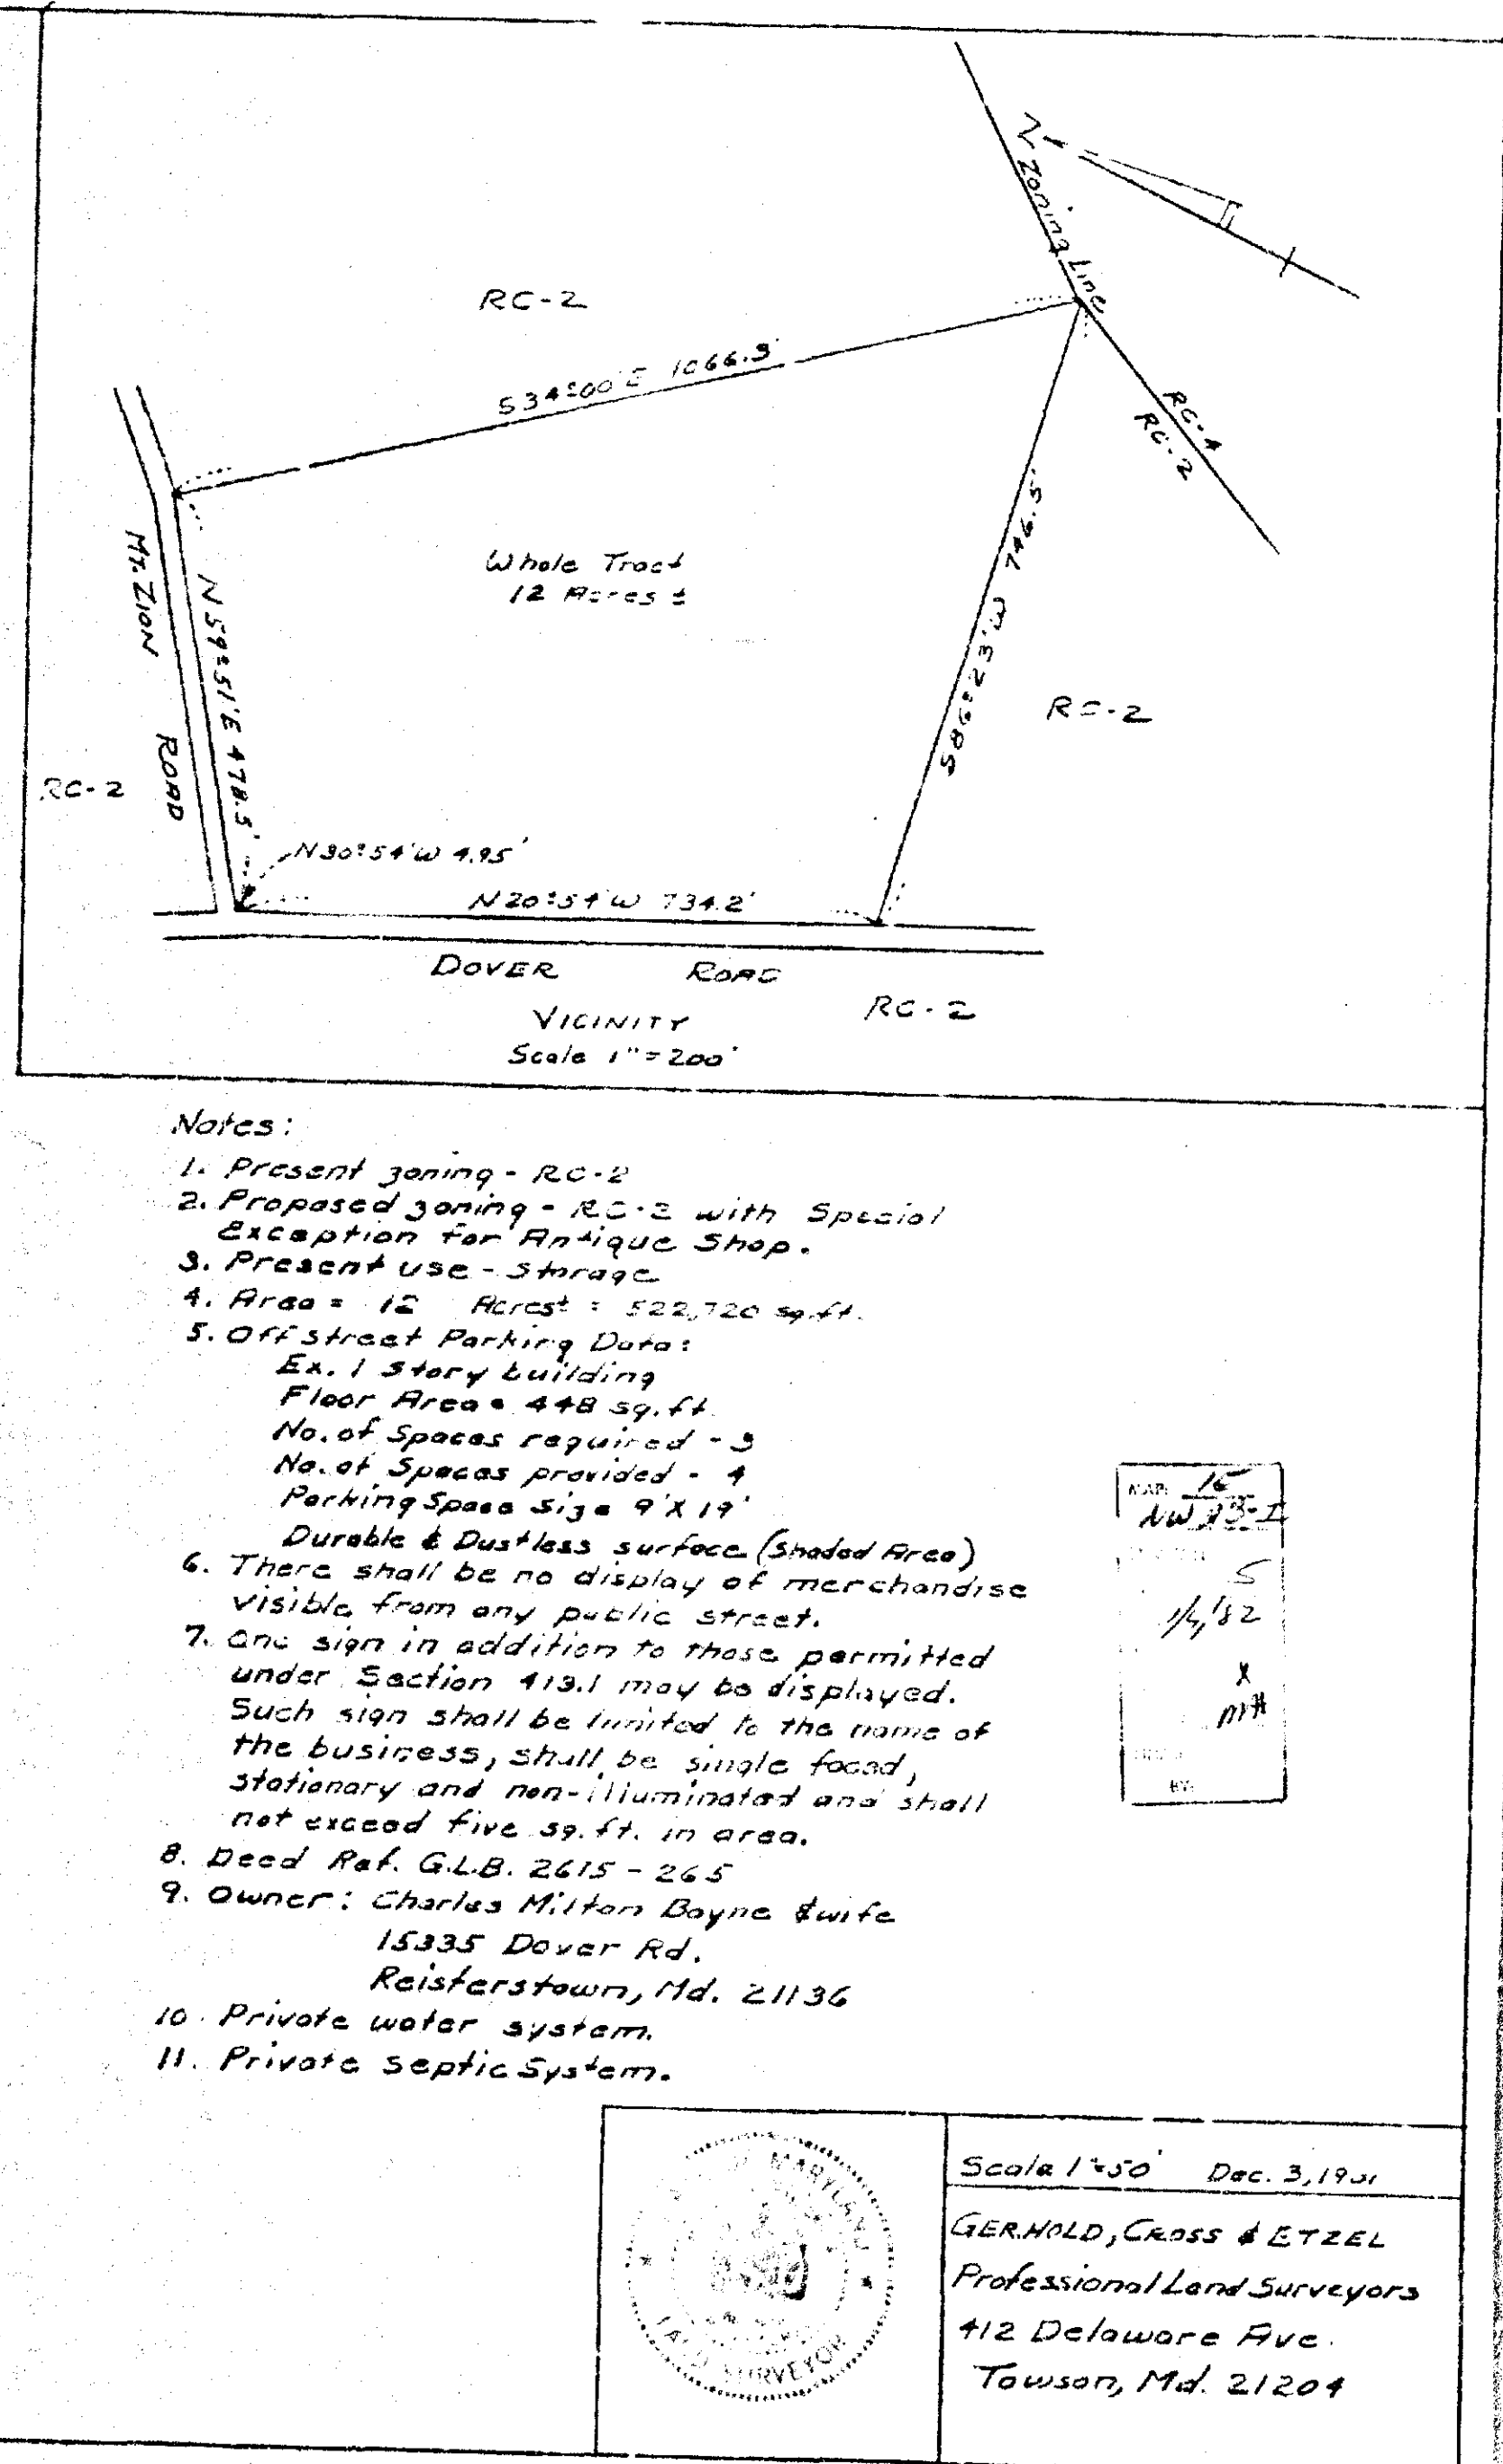 Zoning Line
RC-2
S34°00'E 1066.3'
RC-4
RC-2
Whole Tract
12 Acres ±
MT. ZION ROAD
N59°51'E 478.5'
S86°23'W 746.5'
RC-2
RC-2
N30°54'W 4.95'
N20°54'W 734.2'
DOVER ROAD
RC-2
VICINITY
Scale 1"=200'
Notes:
1. Present zoning - RC-2
2. Proposed zoning - RC-2 with Special
Exception for Antique Shop.
3. Present use - Storage
4. Area = 12 Acres± = 522,720 sq.ft.
5. Off street Parking Data:
Ex. 1 Story building
Floor Area = 448 sq. ft.
No. of Spaces required - 3
No. of Spaces provided - 4
Parking Space Size 9'X19'
Durable & Dustless surface (Shaded Area)
6. There shall be no display of merchandise
visible from any public street.
7. One sign in addition to those permitted
under Section 413.1 may be displayed.
Such sign shall be limited to the name of
the business, shall be single faced,
stationary and non-illuminated and shall
not exceed five sq. ft. in area.
8. Deed Ref. G.L.B. 2615 - 265
9. Owner: Charles Milton Bayne & wife
15335 Dover Rd.
Reisterstown, Md. 21136
10. Private water system.
11. Private Septic System.
MAP:
5
X
BY:
MARYLAND
LAND SURVEYOR
Scale 1"=50' Dec. 3,
GERHOLD, CROSS & ETZEL
Professional Land Surveyors
412 Delaware Ave.
Towson, Md. 21204